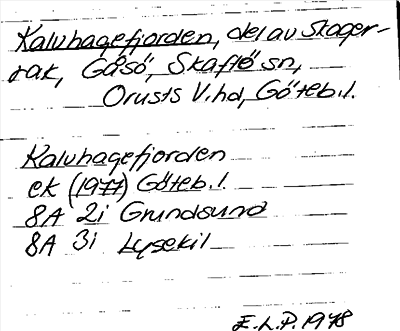 Kalvhagefjorden, del av Skager-
rak, Gåsö, Skaftö sn,
Orusts V.hd, Göteb.l.
Kalvhagefjorden
ek (1977) Göteb.l.
8A 2i Grundsund
8A 3i Lysekil
E.L.P. 1978